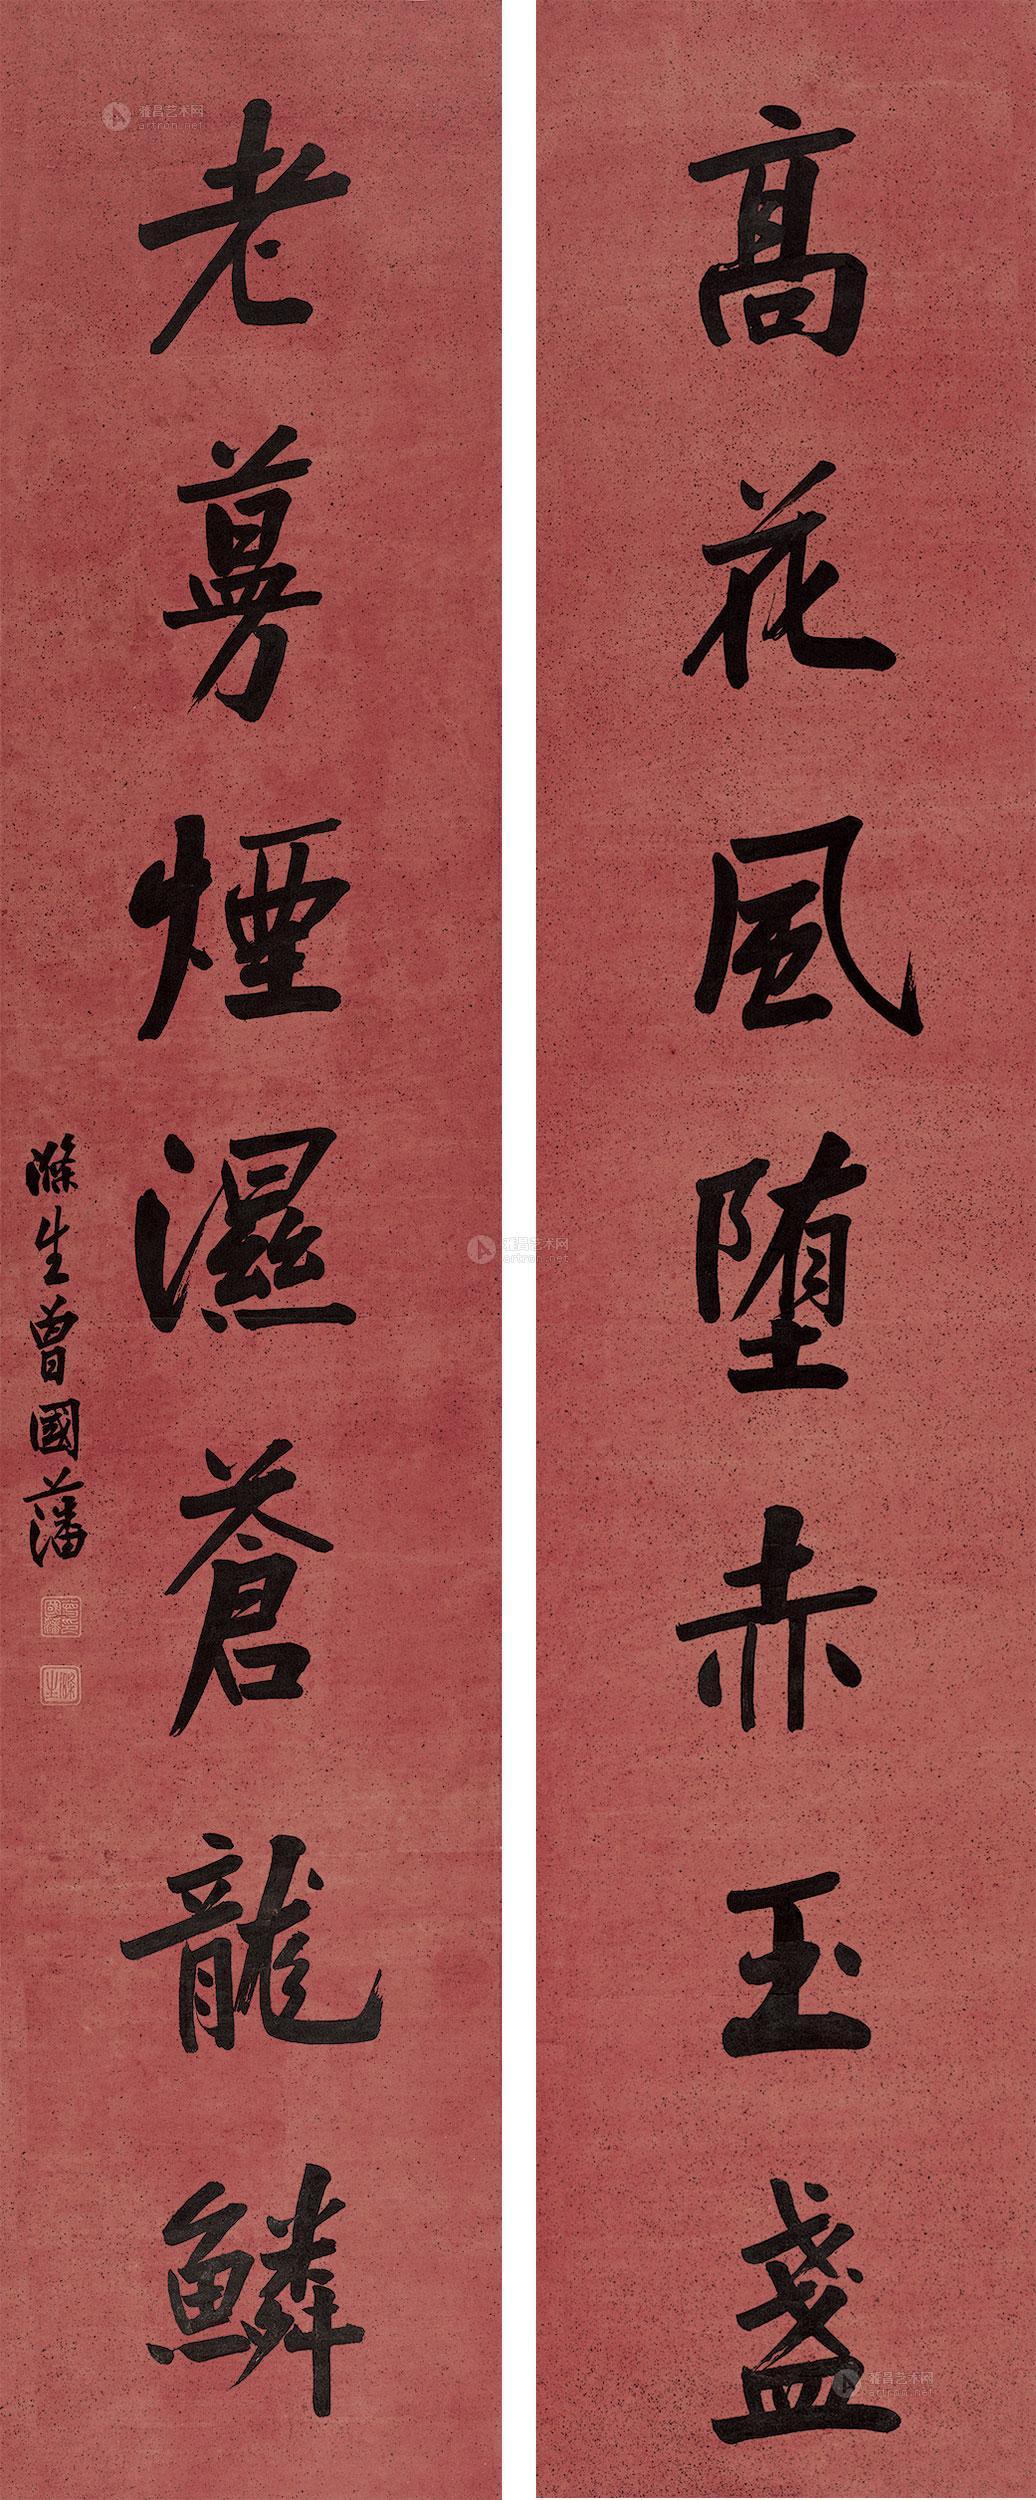 高花風堕赤玉盞
老蔓煙濕蒼龍鱗
滌生曾國藩
雅昌艺术网
artron.net
雅昌艺术网
artron.net
雅昌艺术网
artron.net